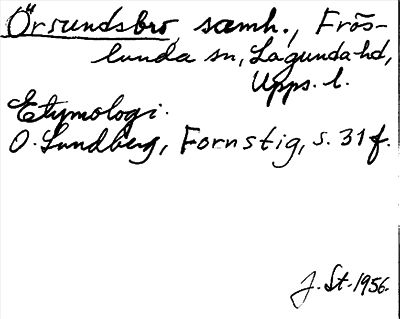 Örsundsbro, samh., Frös-
lunda sn, Lagunda hd,
Upps. l.
Etymologi.
O. Lundberg, Fornstig, s. 31 f.
J. St. 1956.